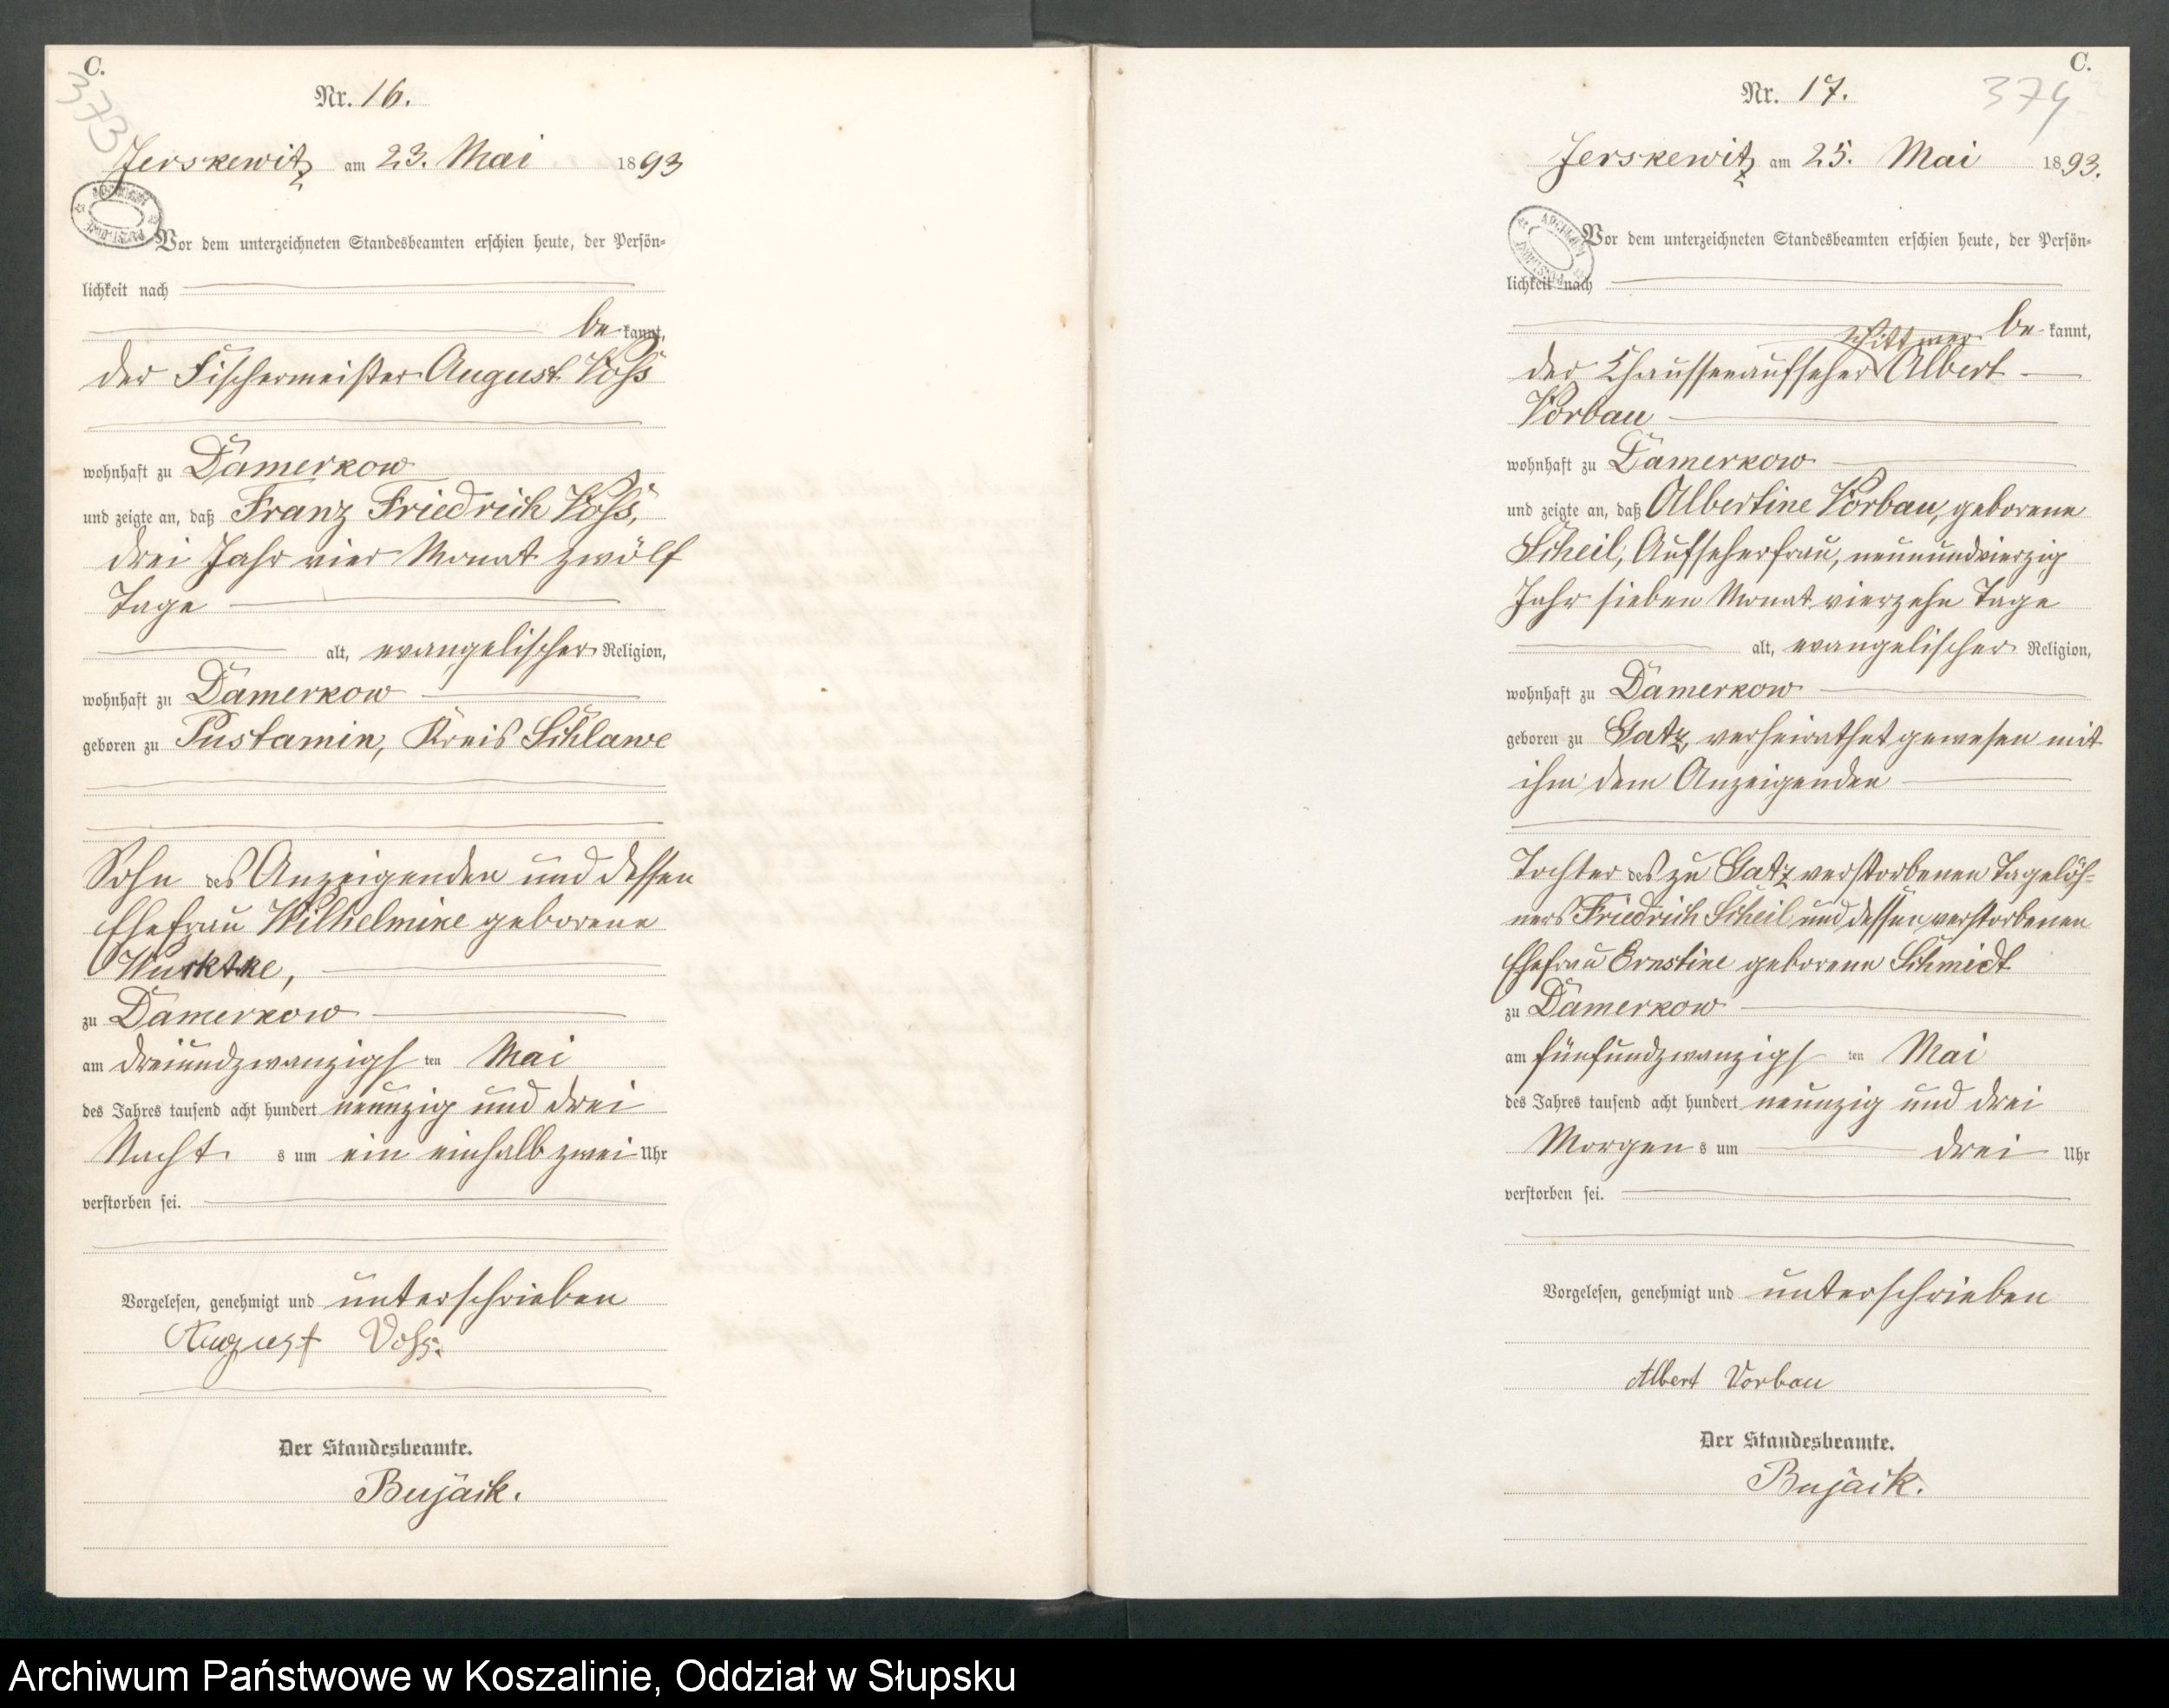 C.
373
Nr. 16.
Jerskewitz am 23. Mai 1893
Vor dem unterzeichneten Standesbeamten erschien heute, der Persön-
lichkeit nach
be kannt,
der Fischermeister August Voß
wohnhaft zu Damerkow
und zeigte an, daß Franz Friedrich Voß,
drei Jahr vier Monat zwölf
Tage
alt, evangelischer Religion,
wohnhaft zu Damerkow
geboren zu Pustamin, Kreis Schlawe
Sohn des Anzeigenden und dessen
Ehefrau Wilhelmine geborene
zu Damerkow
am dreiundzwanzigsten Mai
des Jahres tausend acht hundert neunzig und drei
Nachts um ein einhalb zwei Uhr
verstorben sei.
Vorgelesen, genehmigt und unterschrieben
August Voß.
Der Standesbeamte.
Bujack.
C.
374
Nr. 17.
Jerskewitz am 25. Mai 1893.
Vor dem unterzeichneten Standesbeamten erschien heute, der Persön-
lichkeit nach
be kannt,
Wittwer
der Chausseeaufseher Albert
Vorbau
wohnhaft zu Damerkow
und zeigte an, daß Albertine Vorbau, geborene
Scheil, Aufseherfrau, neunundvierzig
Jahr sieben Monat vierzehn Tage
alt, evangelischer Religion,
wohnhaft zu Damerkow
geboren zu Gatz, verheirathet gewesen mit
ihm dem Anzeigenden
Tochter des zu Gatz verstorbenen Tagelöh-
ners Friedrich Scheil und dessen verstorbenen
Ehefrau Ernstine geborene Schmidt
zu Damerkow
am fünfundzwanzigsten Mai
des Jahres tausend acht hundert neunzig und drei
Morgens um drei Uhr
verstorben sei.
Vorgelesen, genehmigt und unterschrieben
Albert Vorbau
Der Standesbeamte.
Bujack.
Archiwum Państwowe w Koszalinie, Oddział w Słupsku